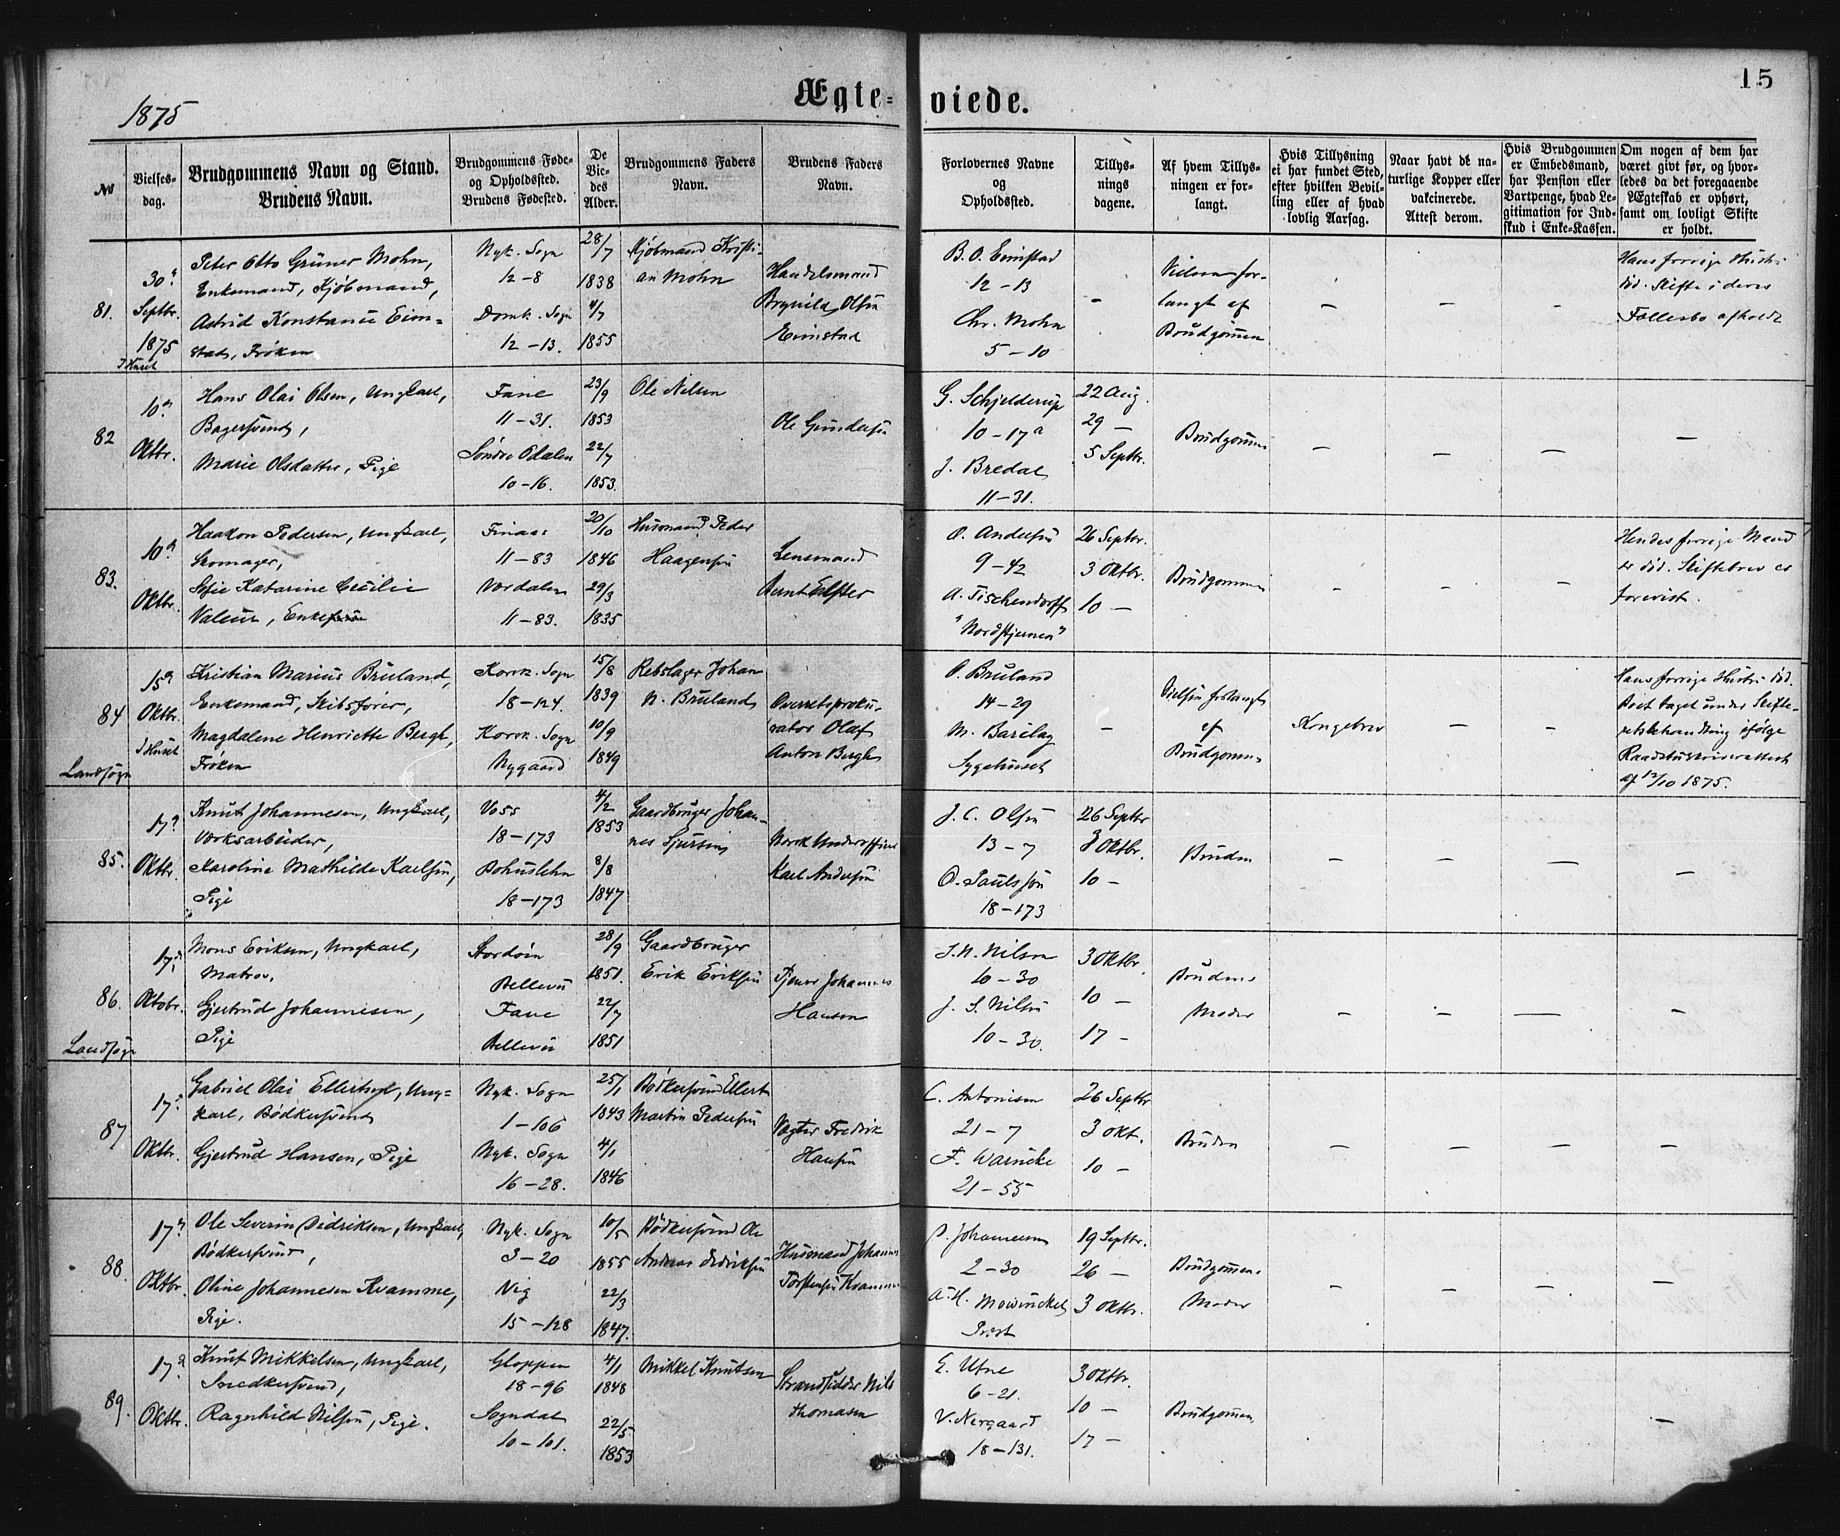 1875
Ægte-
viede.
15
№
Vielses-
dag.
Brudgommens Navn og Stand.
Brudens Navn.
Brudgommens Føde-
og Opholdssted.
Brudens Fødested.
De
Vie-
des
Alder.
Brudgommens Faders
Navn.
Brudens Faders
Navn.
Forlovernes Navne
og
Opholdssted.
Tillys-
nings
dagene.
Af hvem Tillys-
ningen er for-
langt.
Hvis Tillysning
ei har fundet Sted,
efter hvilken Bevil-
ling eller af hvad
lovlig Aarsag.
Naar havt de na-
turlige Kopper eller
vakcinerede.
Attest derom.
Hvis Brudgommen
er Embedsmand,
har Pension eller
Vartpenge, hvad Le-
gitimation for Ind-
skud i Enke-Kassen.
Om nogen af dem har
været gift før, og hvor-
ledes da det foregaaende
Ægteskab er ophørt,
samt om lovligt Skifte
er holdt.
81.
30
Septbr.
1875
I Huset
Peter Otto Grüner Mohn,
Enkemand, Kjøbmand,
Astrid Konstance Eim-
stad, Frøken
Nyk. Sogn
12-8
Domk. Sogn
12-13.
28/7
1838
4/7
1855
Kjøbmand Kristi-
an Mohn
Handelsmand
Brynild Olsen
Eimstad
B. O. Eimstad
12-13
Chr. Mohn
5-10
-
Vielsen for-
langt af
Brudgommen
-
-
-
Hans forrige Hustru
død. Skifte i deres
Fællesbo afholdt
82
10
Oktbr.
Hans Olai Olsen, Ungkarl,
Bagersvend,
Marie Olsdatter, Pige
Fane
11-31.
Søndre Odalen
10-16.
23/9
1853
22/7
1853.
Ole Nilsen
Ole Gundersen
G. Schjelderup
10-17a
J. Bredal
11-31.
22 Aug.
29 -
5 Septbr.
Brudgommen
-
-
-
-
83.
10
Oktbr.
Haakon Pedersen, Ungkarl,
Skomager,
Sofie Katarine Cecilie
Valeur, Enke
Finaas
11-83
Værdalen
11-83.
20/10
1846
29/3
1835
Husmand Peder
Haagensen
Lensmand
Bernt Elster
O. Andersen
9-42
A. Tischendorff
"Nordstjernen"
26 Septbr.
3 Oktbr.
10 -
Brudgommen
-
-
-
Hendes forrige Mand
er død. Skiftebrev er
forevist.
84
15
Oktbr.
I Huset
Landsogn
Kristian Marius Bruland,
Enkemand, Skibsfører,
Magdalene Henriette Bergh,
Frøken
Korsk. Sogn
18-124.
Korsk. Sogn
Nygaard
15/8
1839
10/9
1849
Rebslager Johan
N. Bruland
Overretsproku-
rator Olaf
Anton Bergh
O. Bruland
14-29
M. Barclay
Sygehuset
-
Vielsen forlangt
af
Brudgommen
Kongebrev
-
-
Hans forrige Hustru død.
Boet taget under Skifte-
retsbehandling ifølge
Raadstuskriverattest
af 12/10 1875.
85.
17
Oktbr.
Knut Johannesen, Ungkarl,
Værksarbeider,
Karoline Mathilde Karlsen,
Pige
Voss
18-173
Bohuslehn
18-173
4/2
1853
8/8
1847
Gaardbruger Johan-
nes Sjursen
Norsk Underofficer
Karl Andersen
J. C. Olsen
13-7
O. Paulssen
18-173
26 Septbr
3 Oktbr.
10 -
Bruden
-
-
-
-
86.
17
Oktobr.
Landsogn
Mons Eriksen, Ungkarl,
Matros,
Gjertrud Johannesen,
Pige
Stordøen
Bellevu
Fane
Bellevu
28/9
1851.
22/7
1851
Gaardbruger
Erik Eriksen
Tjener Johannes
Hansen
J. N. Nilsen
10-30
J. S. Nilsen
10-30.
3 Oktbr.
10 -
17 -
Brudens
Moder
-
-
-
-
87
17
Oktbr.
Gabriel Olai Ellertsen, Ung-
karl, Bødkersvend
Gjertrud Hansen, Pige
Nyk. Sogn
1-106
Nyk. Sogn
16-28.
25/1
1843
4/1
1846
Bødkersvend Ellert
Martin Pedersen
Vægter Fredrik
Hansen
C. Antonisen
21-7
F. Warncke
21-55
26 Septbr
3 Okt.
10 -
Bruden
-
-
-
-
88.
17
Oktbr.
Ole Severin Didriksen, Ungkarl,
Bødkersvend,
Oline Johannesen Kvamme,
Pige.
Nyk. Sogn
3-20
Vig
15-128
10/5
1855
22/3
1847.
Bødkersvend Ole
Andreas Didriksen
Husmand Johannes
Torstensen Kvamme
O. Johannesen
2-30
A. H. Mowinckel
Prest
19 Septbr.
26 -
3 Oktbr.
Brudgommens
Moder
-
-
-
-
89.
17
Oktbr.
Knut Mikkelsen, Ungkarl,
Snedkersvend,
Ragnhild Nilsen, Pige.
Gloppen
18-96
Sogndal
10-101.
4/1
1848
22/5
1853
Mikkel Knutsen
Strandsidder Nils
Thomasen
E. Utne
6-21.
V. Nergaard
18-131.
3 Oktbr.
10 -
17 -
Brudgommen
-